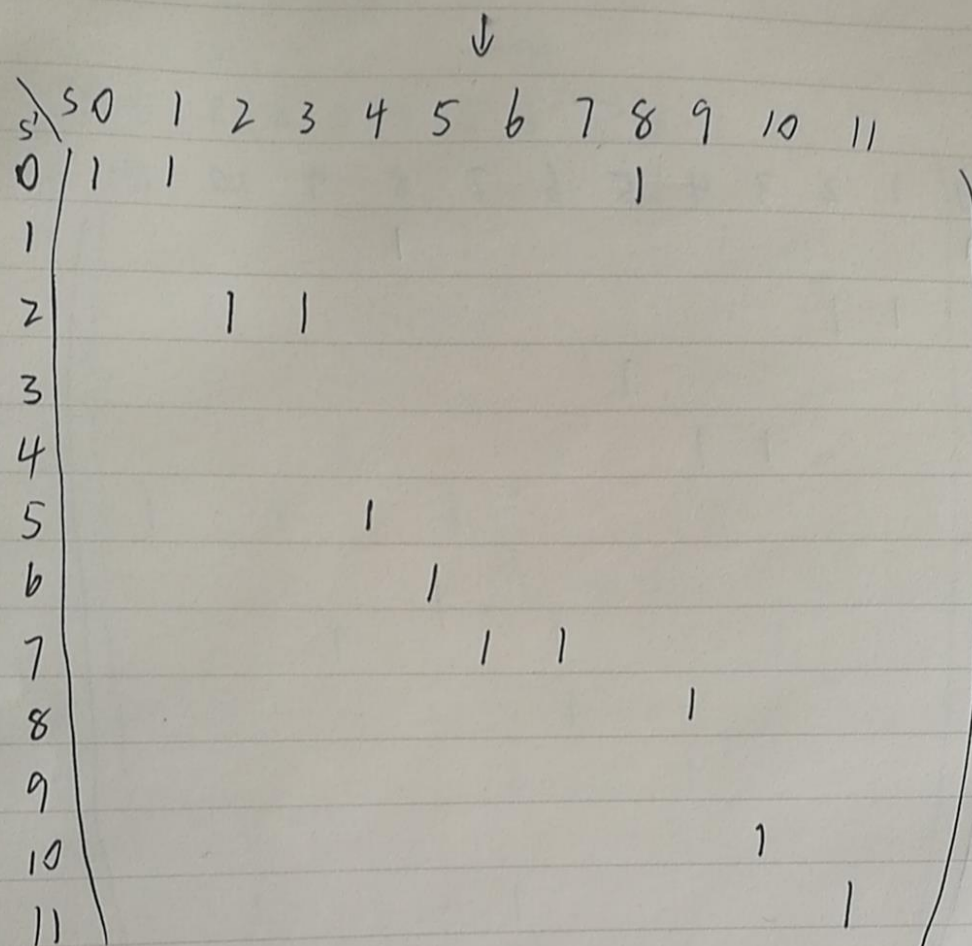 ↓
s' \ s 0 1 2 3 4 5 6 7 8 9 10 11
0 1 1 1
1
2 1 1
3
4
5 1
6 1
7 1 1
8 1
9
10 1
11 1